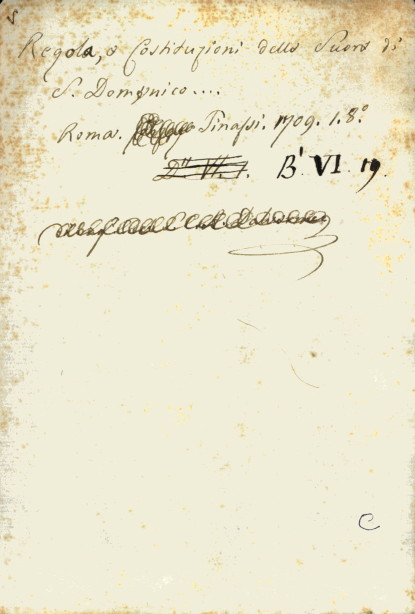 Regola, o Costituzioni delle Suore di
S. Domenico....
Roma. Tinassi. 1709. 1. 8.º
B. VI. 19.
C